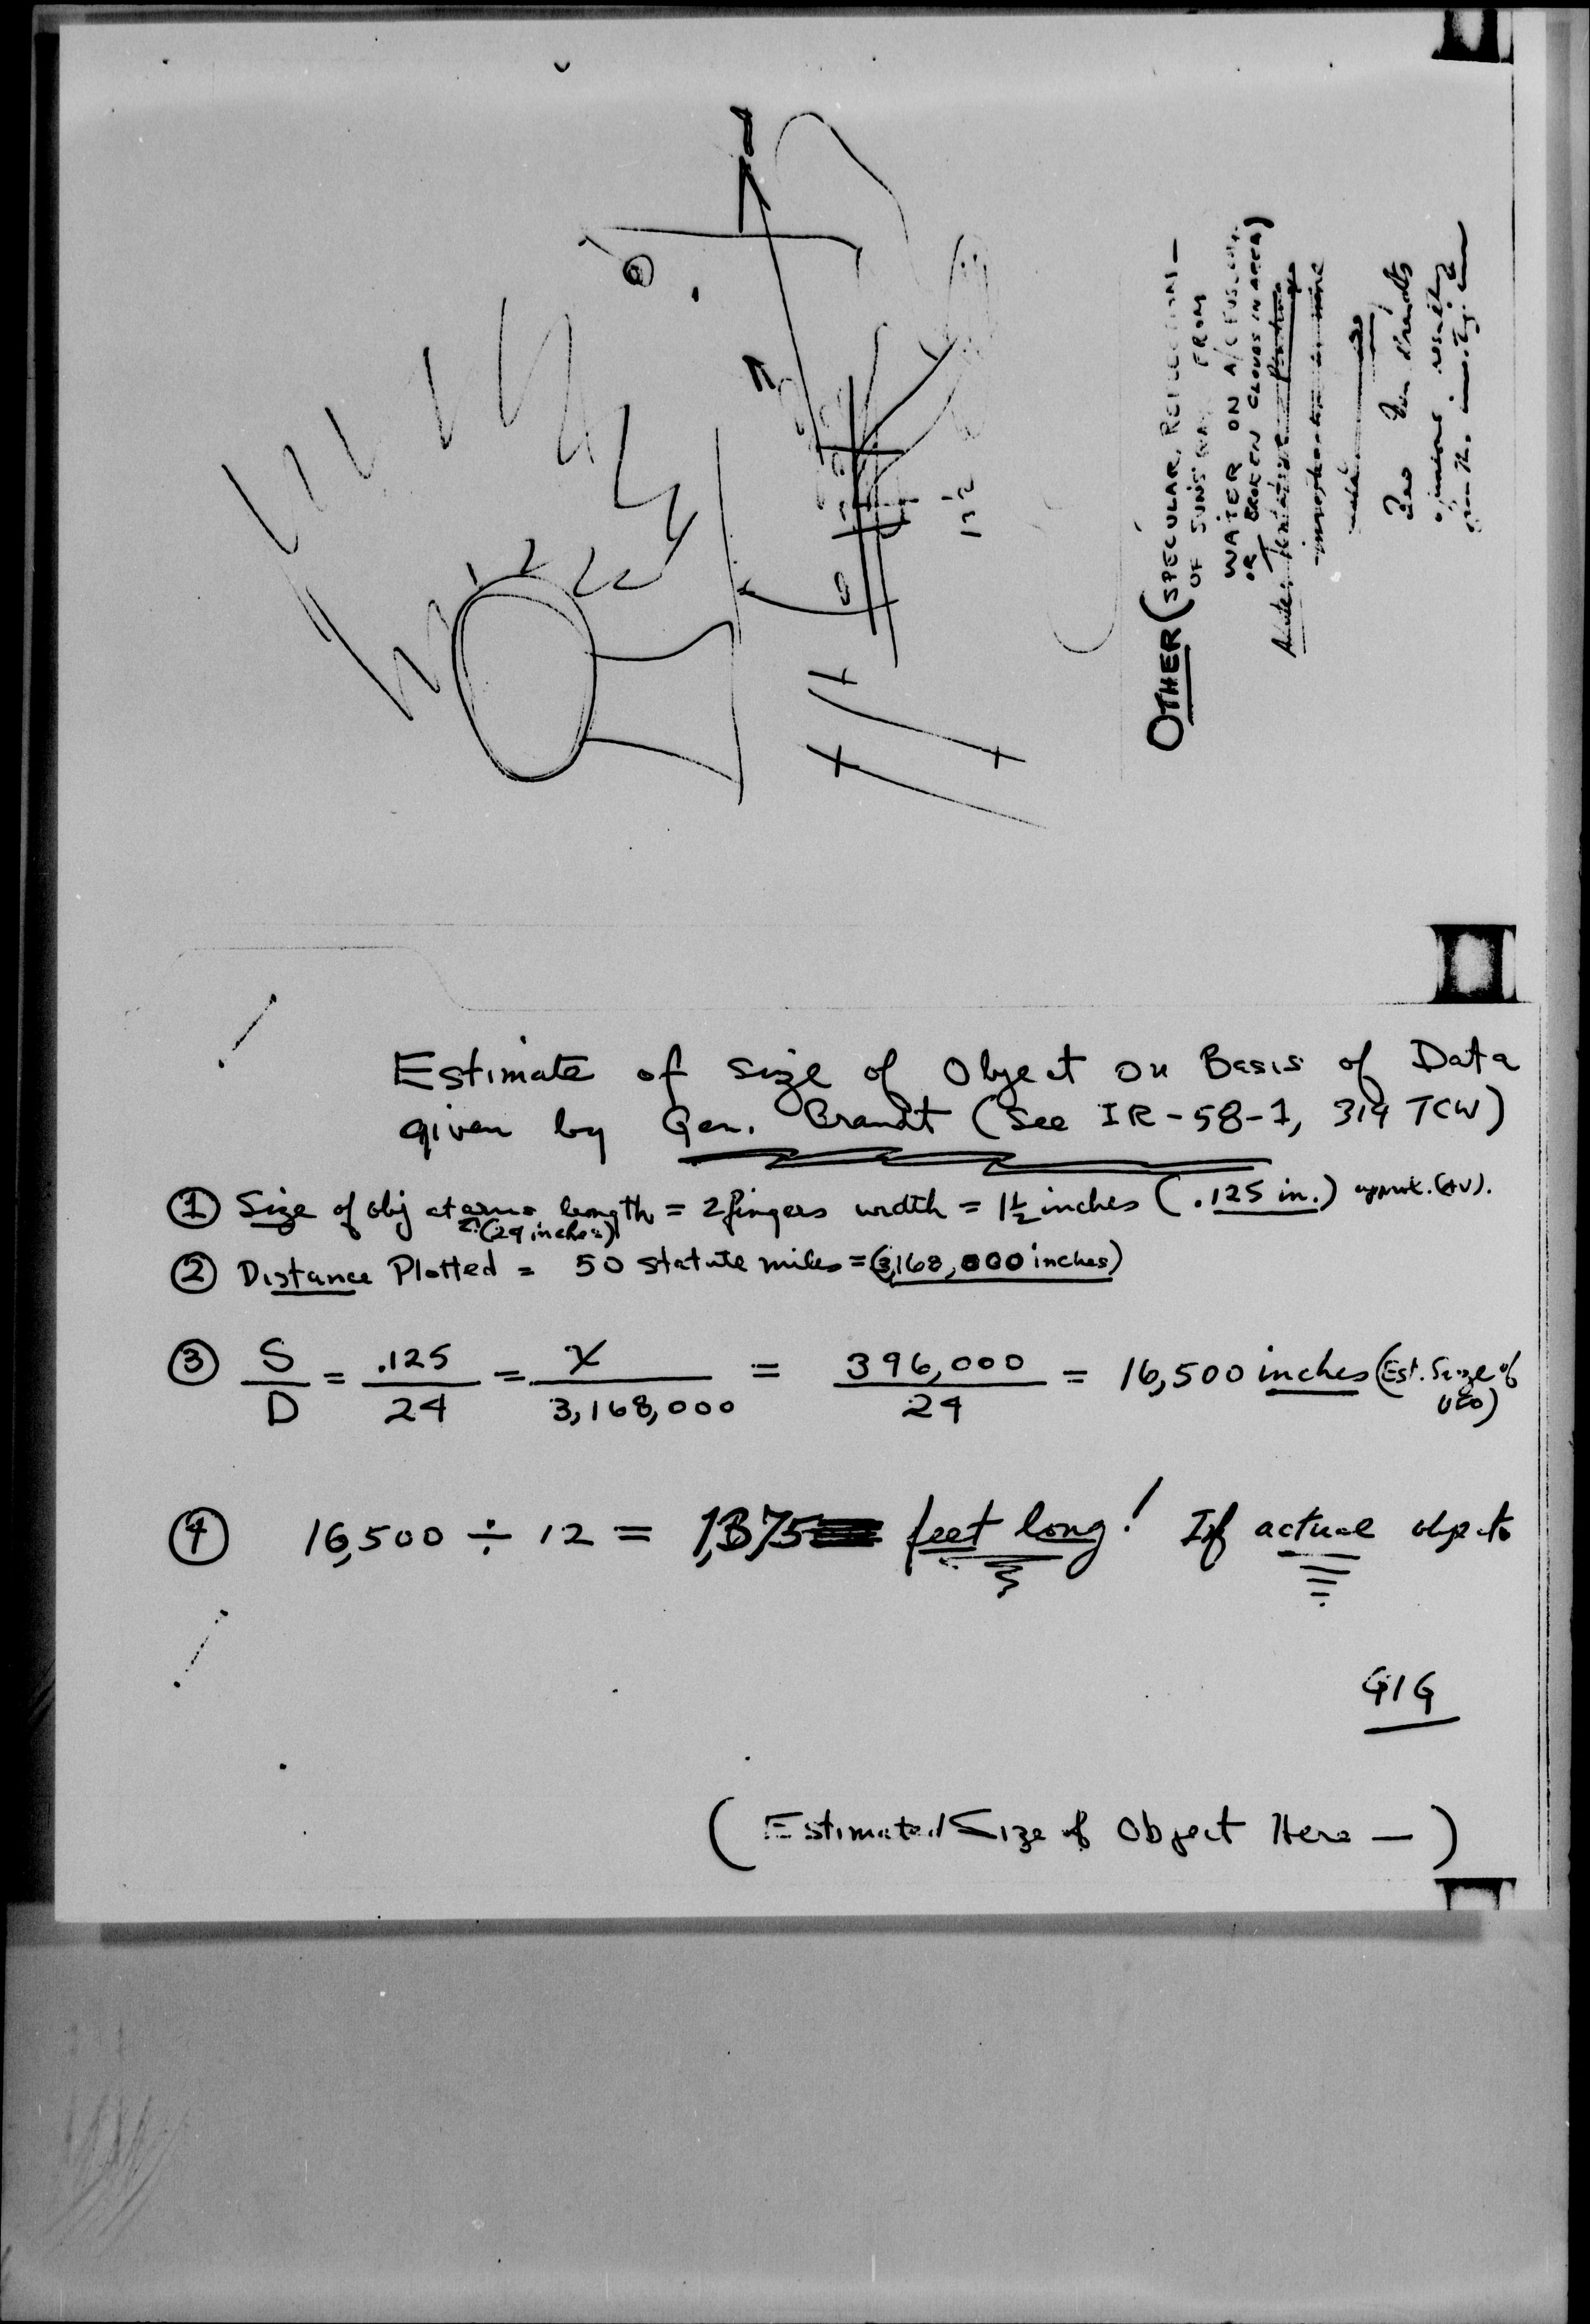 OTHER (SPECULAR, REFLECTIONS -
OF SUN'S RAYS FROM
WATER ON A/C FUSELAGE
OR BROKEN CLOUDS IN AREA)
See Gen Brandt's
opinions resulting
from the investigation
1½
Estimate of size of Object on Basis of Data
given by Gen. Brandt (See IR-58-1, 314 TCW)
① Size of obj at arms length = 2 fingers width = 1½ inches (.125 in.) approx. (AV).
(24 inches)
② Distance Plotted = 50 statute miles = (3,168,000 inches)
③ S/D = .125/24 = X/3,168,000 = 396,000/24 = 16,500 inches (Est. Size of
UFO)
④ 16,500 ÷ 12 = 1,375 feet long! If actual object
GIG
(Estimated Size of Object Here —)